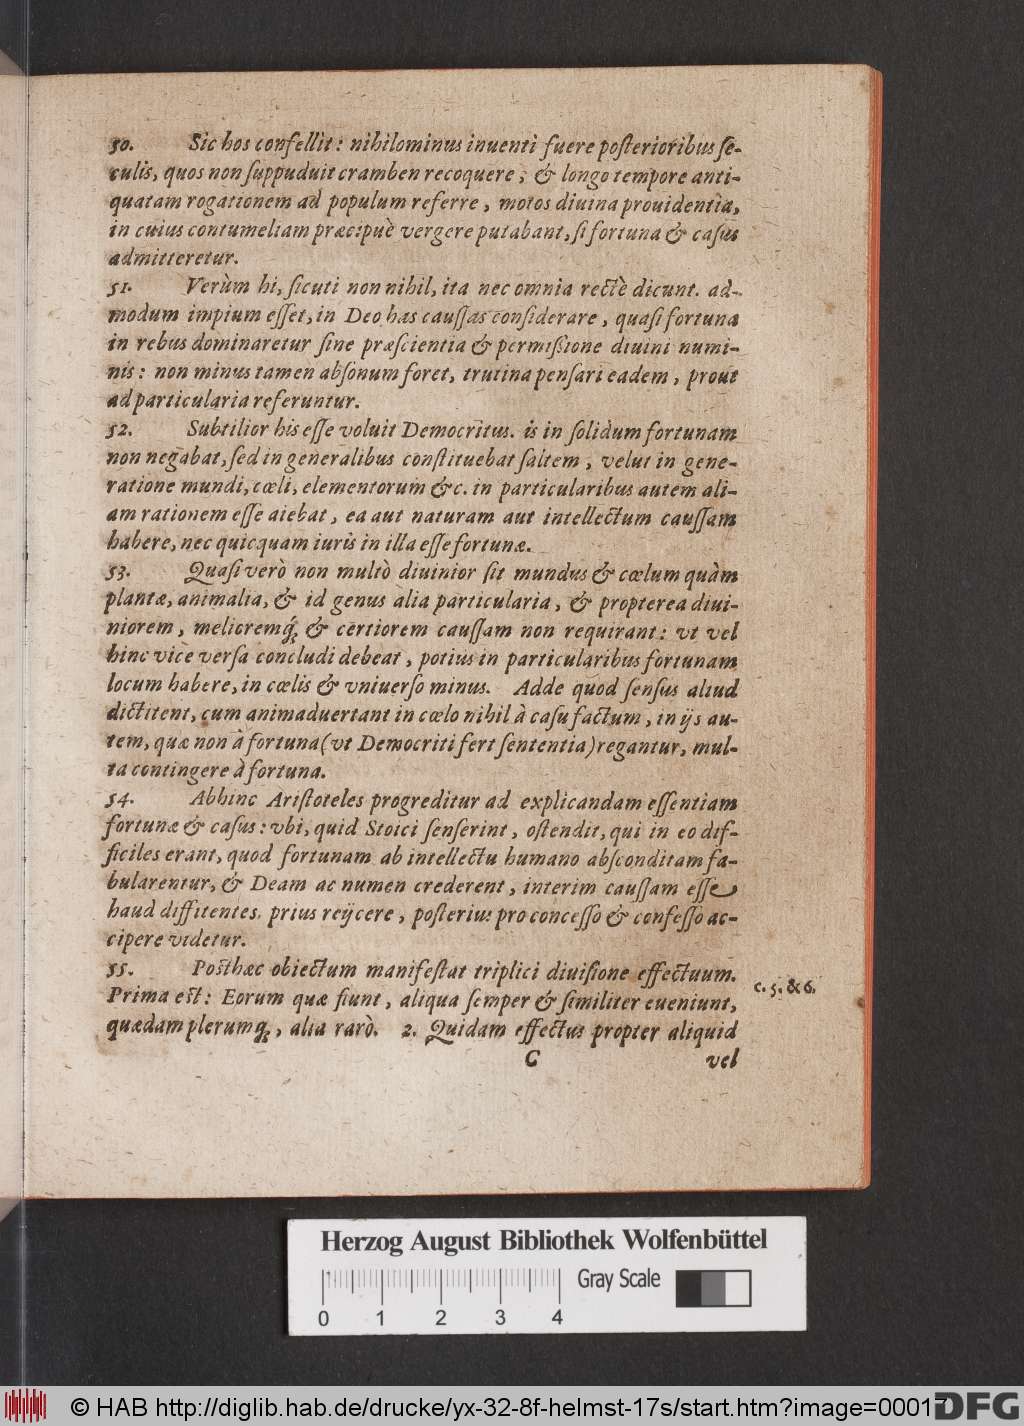 50. Sic hos confellit: nihilominus inuenti fuere posterioribus se-
culis, quos non suppuduit cramben recoquere, & longo tempore anti-
quatam rogationem ad populum referre, motos diuina prouidentia,
in cuius contumeliam præcipuè vergere putabant, si fortuna & casus
admitteretur.
51. Verùm hi, sicuti non nihil, ita nec omnia rectè dicunt. ad-
modum impium esset, in Deo has caussas considerare, quasi fortuna
in rebus dominaretur sine præscientia & permissione diuini numi-
nis: non minus tamen absonum foret, trutina pensari eadem, prout
ad particularia referuntur.
52. Subtilior his esse voluit Democritus. is in solidum fortunam
non negabat, sed in generalibus constituebat saltem, velut in gene-
ratione mundi, cœli, elementorum &c. in particularibus autem ali-
am rationem esse aiebat, ea aut naturam aut intellectum caussam
habere, nec quicquam iuris in illa esse fortunæ.
53. Quasi verò non multò diuinior sit mundus & cœlum quàm
plantæ, animalia, & id genus alia particularia, & propterea diui-
niorem, melioremq́; & certiorem caussam non requirant: vt vel
hinc vice versa concludi debeat, potius in particularibus fortunam
locum habere, in cœlis & vniuerso minus. Adde quod sensus aliud
dictitent, cum animaduertant in cœlo nihil à casu factum, in ijs au-
tem, quæ non à fortuna (vt Democriti fert sententia) regantur, mul-
ta contingere à fortuna.
54. Abhinc Aristoteles progreditur ad explicandam essentiam
fortunæ & casus: vbi, quid Stoici senserint, ostendit, qui in eo dif-
ficiles erant, quod fortunam ab intellectu humano absconditam fa-
bularentur, & Deam ac numen crederent, interim caussam esse
haud diffitentes. prius reijcere, posterius pro concesso & confesso ac-
cipere videtur.
55. Posthæc obiectum manifestat triplici diuisione effectuum.
c. 5. & 6.
Prima est: Eorum quæ fiunt, aliqua semper & similiter eueniunt,
quædam plerumq;, alia rarò. 2. Quidam effectus propter aliquid
C vel
Herzog August Bibliothek Wolfenbüttel
Gray Scale
0 1 2 3 4
© HAB http://diglib.hab.de/drucke/yx-32-8f-helmst-17s/start.htm?image=00017
DFG